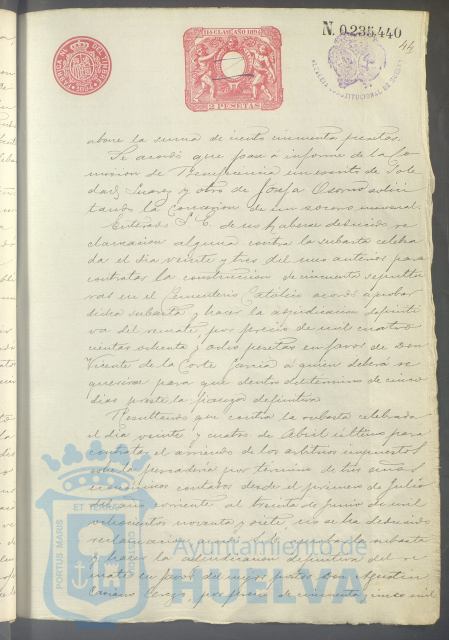 11ª CLASE AÑO 1894
N. 0.235,440
44
2 PESETAS
abone la suma de ciento cincuenta pesetas.
Se acordó que pase a informe de la Co
mision de Beneficencia un escrito de Sole
dad Suarez y otro de Josefa Osorno solici
tando la concesion de un socorro mensual.
Enterado S. E. de no haberse deducido re
clamacion alguna contra la subasta celebra
da el dia veinte y tres del mes anterior para
contratar la construccion de cincuenta sepultu
ras en el Cementerio Católico acordó aprobar
dicha subasta y hacer la adjudicacion definiti
va del remate, por precio de mil cuatro
cientas ochenta y ocho pesetas en favor de Don
Vicente de la Corte Garcia á quien deberá re
querirse para que dentro del termino de cinco
dias preste la fianza definitiva
Resultando que contra la subasta celebrada
el dia veinte y cuatro de Abril último para
contratar el arriendo de los arbitrios impuestos
sobre la pescaderia por termino de tres años
económicos contados desde el primero de Julio
del año corriente al treinta de Junio de mil
ochocientos noventa y siete, no se ha deducido
reclamacion alguna S. E. aprobar la subasta
y hacer la adjudicacion definitiva del re
mate en favor del mejor postor Don Agustin
Cerezo, por precio de cincuenta y cinco mil
PORTUS MARIS ET TERRAE CUSTODIA
Ayuntamiento de
HUELVA